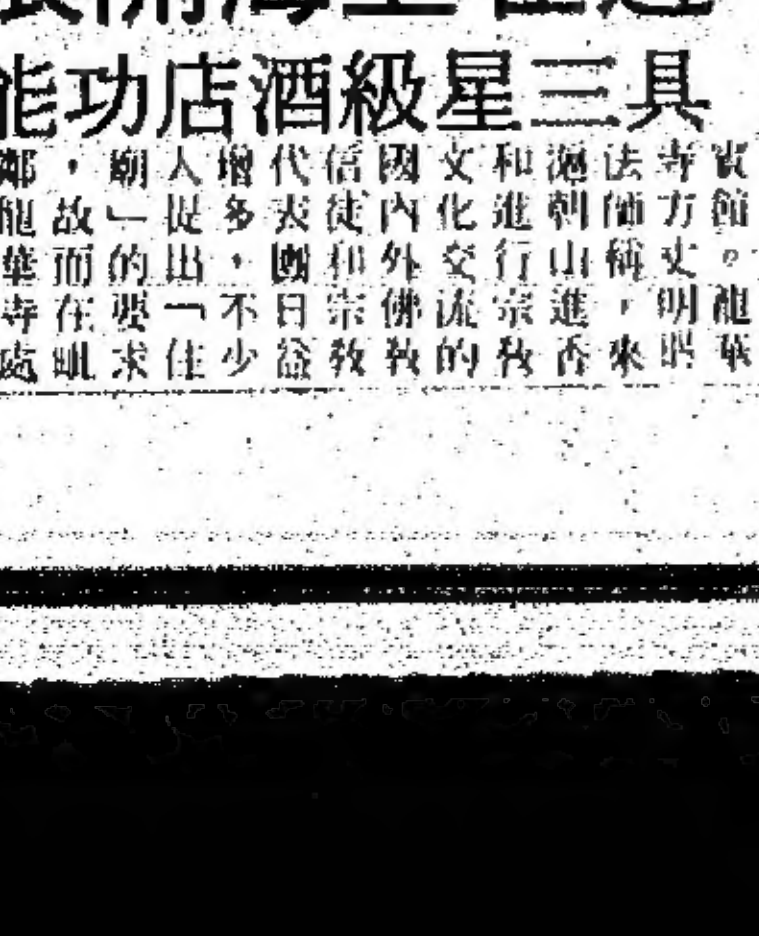 具三星級酒店功能
賓館。龍華
寺方丈明暘
法師稱，來
滬朝山進香
和進行宗教
文化交流的
國內外佛教
信徒和宗教
代表團日益
增多，不少
人提出「住
廟」的要求
，故而在毗
鄰龍華寺處